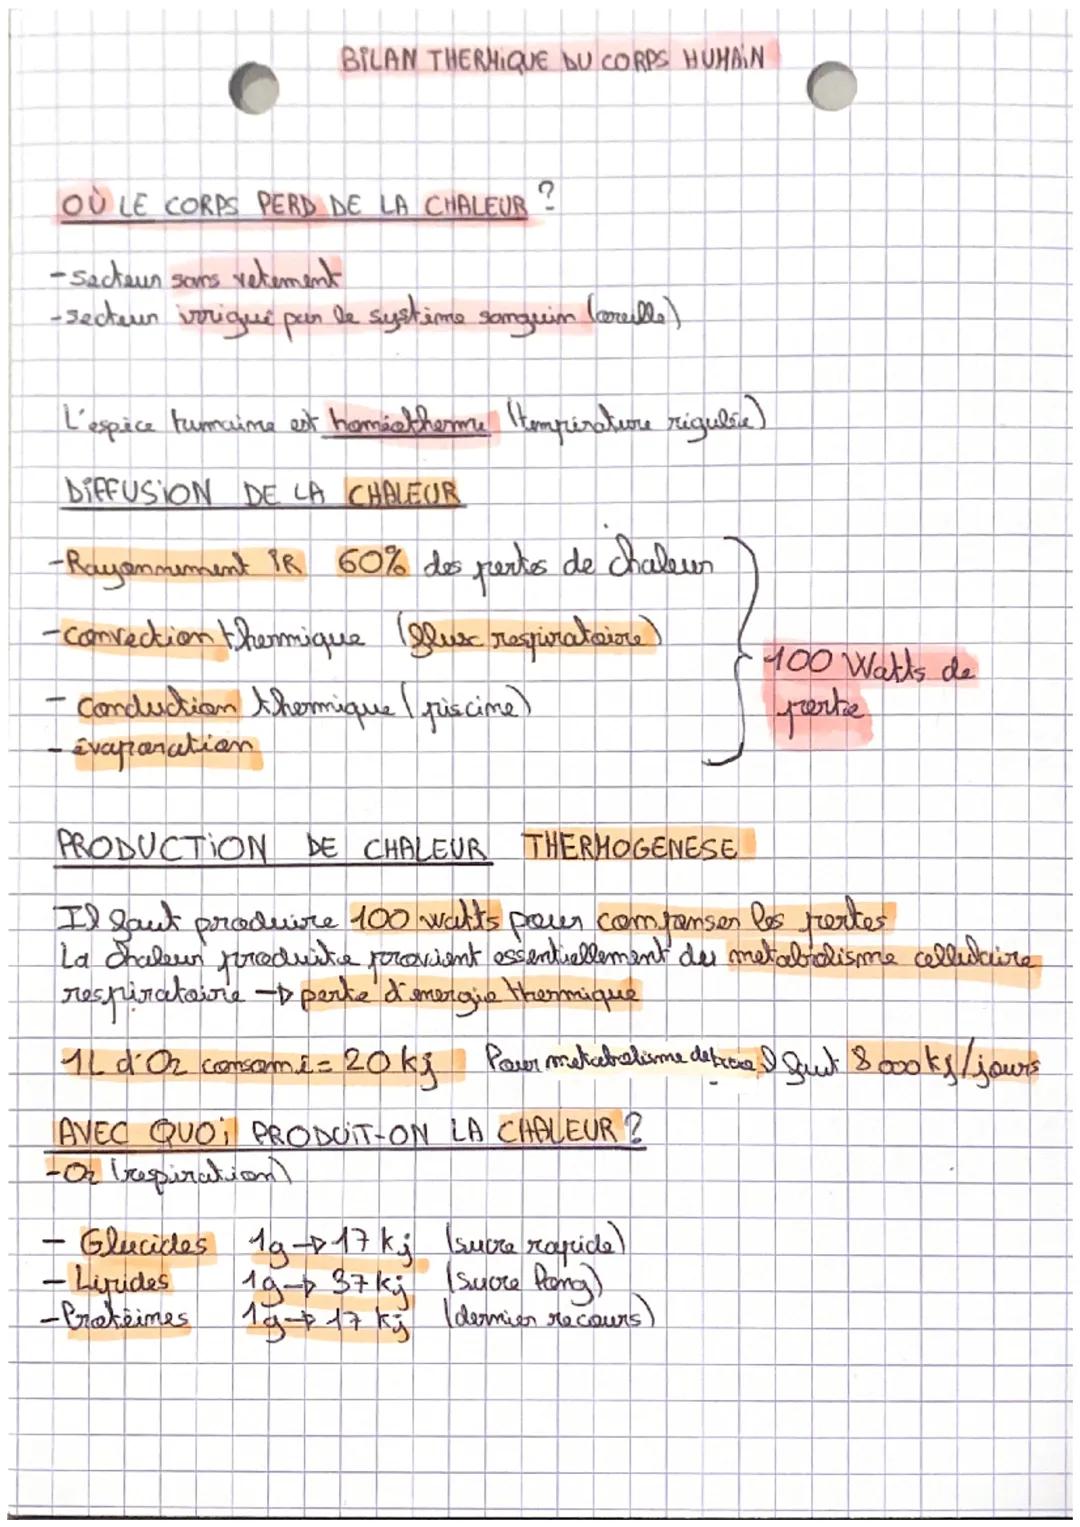 BILAN THERMIQUE DU CORPS HUMAIN
OÙ LE CORPS PERD DE LA CHALEUR ?
- secteur sans vetement
- secteur irrigué par le système sanguin (oreille)
L'espèce humaine est homéotherme (température régulée)
DIFFUSION DE LA CHALEUR
- Rayonnement IR 60% des pertes de chaleur
- convection thermique (flux respiratoire)
- conduction thermique (piscine)
- évaporation
100 Watts de
perte
PRODUCTION DE CHALEUR THERMOGENESE
Il faut produire 100 watts pour compenser les pertes
La chaleur produite provient essentiellement du metabolisme cellulaire
respiratoire → perte d'energie thermique
1L d'O2 consomé = 20 kj Pour metabolisme de base il faut 8 000 kj/jours
AVEC QUOI PRODUIT-ON LA CHALEUR ?
- O2 (respiration)
- Glucides 1g → 17 kj (sucre rapide)
- Lipides 1g → 37 kj (sucre long)
- Protéines 1g → 17 kj (dernier recours)